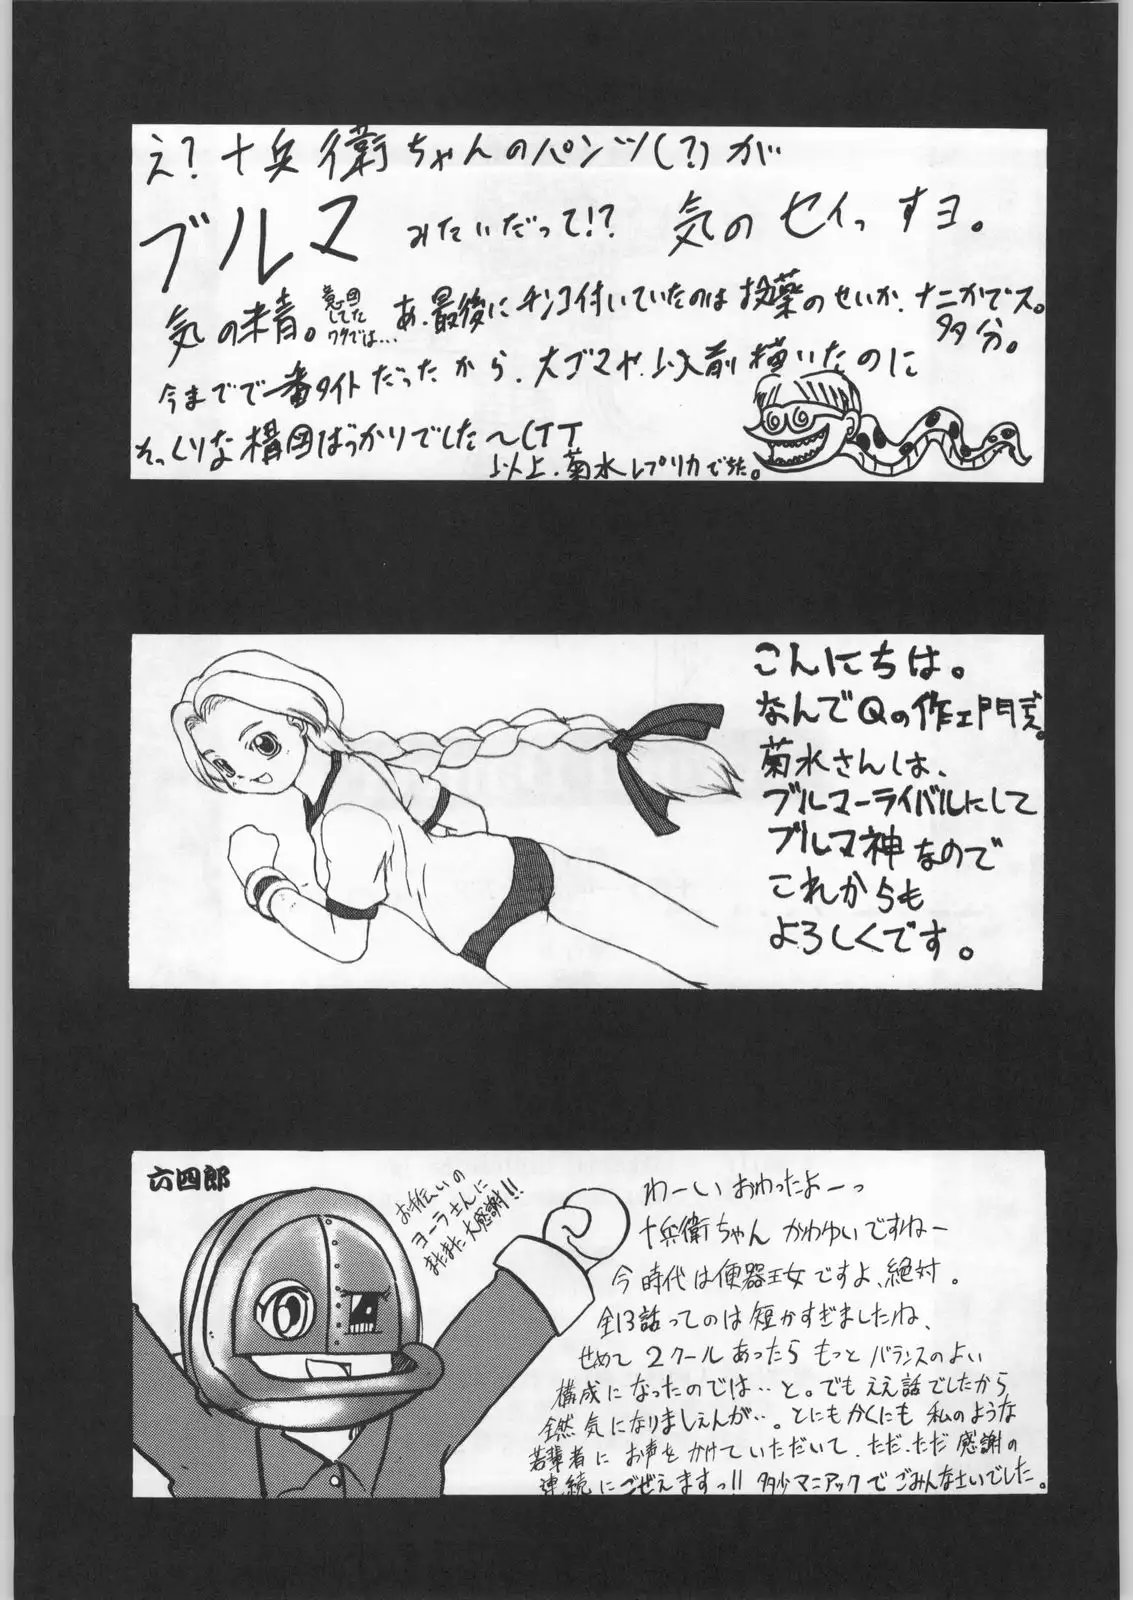 え?十兵衛ちゃんのパンツ(?)が
ブルマ みたいだって!? 気のセイっすヨ。
気の せい。
意図
してた
ワケでは…
あ、最後にチンコ付いていたのは投薬のせいか、ナニかでス。
多分。
今までで一番タイトだったから、大ゴマや、以前描いたのに
そっくりな構図ばっかりでした〜(TT
以上、菊水レプリカでちた。
こんにちは。
なんでQの作ェ門だ。
菊水さんは、
ブルマーライバルにして
ブルマ神なので
これからも
よろしくです。
六四郎
お手伝いの
ヨーラさんに
またまた大感謝!!
わーい おわったよーっ
十兵衛ちゃん かわゆいですねー
今時代は便器王女ですよ、絶対。
全13話ってのは短かすぎましたね、
せめて2クールあったらもっとバランスのよい
構成になったのでは‥と。でもええ話でしたから
全然気になりましぇんが‥。とにもかくにも私のような
若輩者にお声をかけていただいて、ただ、ただ感謝の
連続にごぜえますっ!! 多少マニアックでごみんなさいでした。